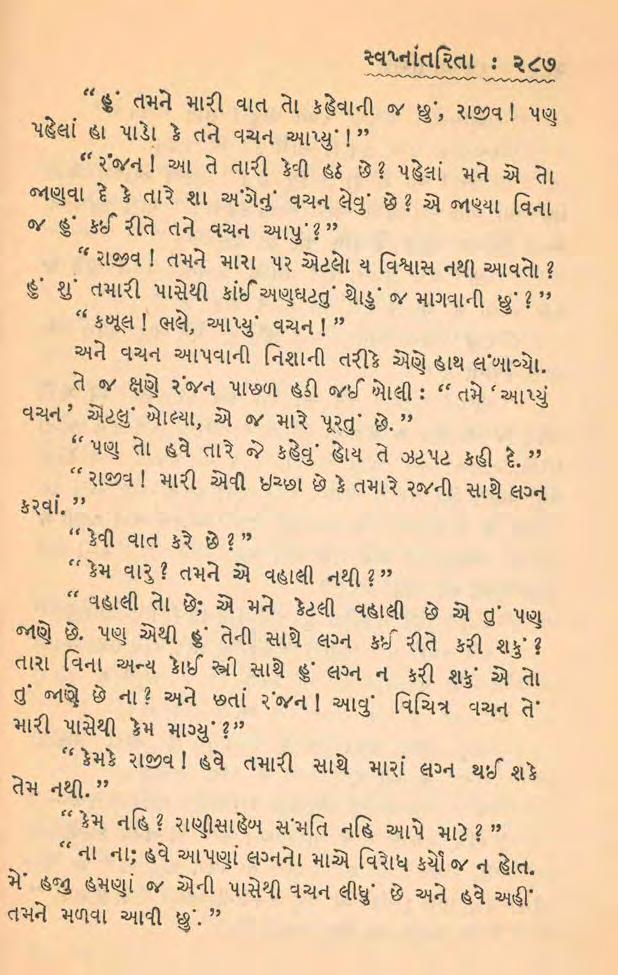 સ્વપ્નાંતરિતા : ૨૮૭
“હું તમને મારી વાત તો કહેવાની જ છું, રાજીવ! પણ
પહેલાં હા પાડો કે તને વચન આપ્યું!”
“રંજન! આ તે તારી કેવી હઠ છે? પહેલાં મને એ તો
જાણવા દે કે તારે શા અંગેનું વચન લેવું છે? એ જાણ્યા વિના
જ હું કઈ રીતે તને વચન આપું?”
“રાજીવ! તમને મારા પર એટલો ય વિશ્વાસ નથી આવતો?
હું શું તમારી પાસેથી કાંઈ અણઘટતું થોડું જ માગવાની છું?”
“કબૂલ! ભલે, આપ્યું વચન!”
અને વચન આપવાની નિશાની તરીકે એણે હાથ લંબાવ્યો.
તે જ ક્ષણે રંજન પાછળ હઠી જઈ બોલી : “તમે ‘આપ્યું
વચન’ એટલું બોલ્યા, એ જ મારે પૂરતું છે.”
“પણ તો હવે તારે જે કહેવું હોય તે ઝટપટ કહી દે.”
“રાજીવ! મારી એવી ઇચ્છા છે કે તમારે રજની સાથે લગ્ન
કરવાં.”
“કેવી વાત કરે છે?”
“કેમ વારુ? તમને એ વહાલી નથી?”
“વહાલી તો છે; એ મને કેટલી વહાલી છે એ તું પણ
જાણે છે. પણ એથી હું તેની સાથે લગ્ન કઈ રીતે કરી શકું?
તારા વિના અન્ય કોઈ સ્ત્રી સાથે હું લગ્ન ન કરી શકું એ તો
તું જાણે છે ના? અને છતાં રંજન! આવું વિચિત્ર વચન તેં
મારી પાસેથી કેમ માગ્યું?”
“કેમકે રાજીવ! હવે તમારી સાથે મારાં લગ્ન થઈ શકે
તેમ નથી.”
“કેમ નહિ? રાણીસાહેબ સંમતિ નહિ આપે માટે?”
“ના ના; હવે આપણાં લગ્નનો માએ વિરોધ કર્યો જ ન હોત.
મેં હજી હમણાં જ એની પાસેથી વચન લીધું છે અને હવે અહીં
તમને મળવા આવી છું.”